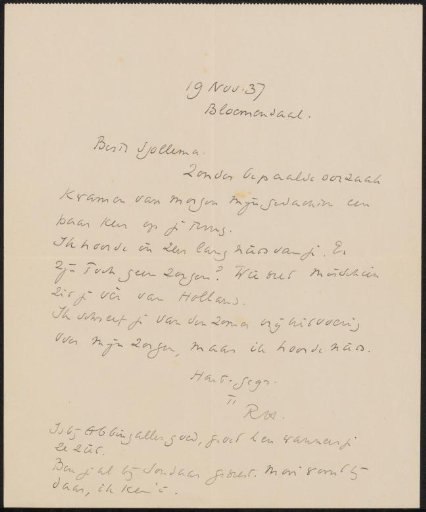 19 Nov. 37
Bloemendaal.
Beste Sjollema.
Zonder bepaalde oorzaak
kwamen van morgen mijn gedachten een
paar keer op je terug.
Ik hoorde in zeer lang niets van je. Er
zijn toch geen zorgen? Wie weet misschien
zit je uit van Holland.
Ik schreef je van den zomer vrij uitvoerig
over mijn zorgen, maar ik hoorde niets.
Hart. gegr.
Is bij Abbing alles goed, groet hen wanneer je
ze ziet.
Ben je al bij geweest. Mooi werk bij
daar, ik ken 't.